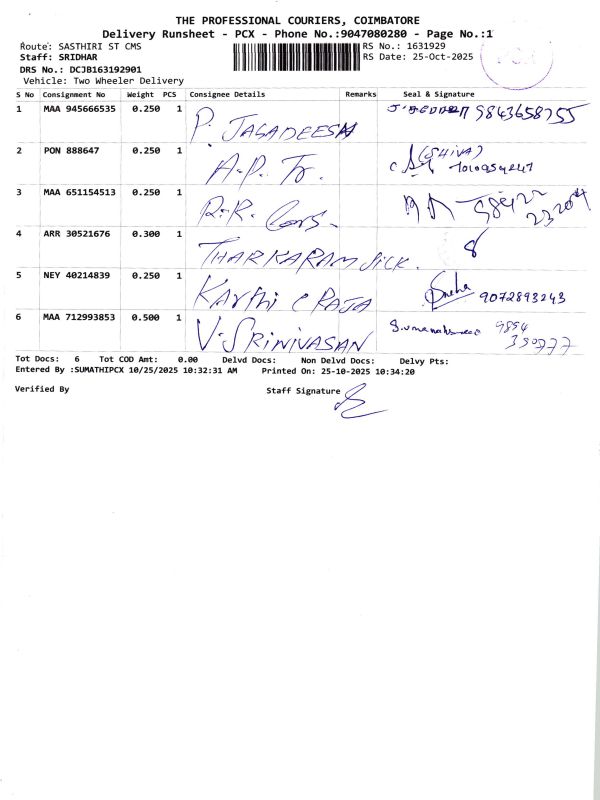 THE PROFESSIONAL COURIERS, COIMBATORE
Delivery Runsheet - PCX - Phone No.:9047080280 - Page No.:1
Route: SASTHIRI ST CMS RS No.: 1631929
Staff: SRIDHAR RS Date: 25-Oct-2025
DRS No.: DCJB163192901
Vehicle: Two Wheeler Delivery
S No Consignment No Weight PCS Consignee Details Remarks Seal & Signature
1 MAA 945666535 0.250 1 P. JAGADEESH 9843658755
2 PON 888647 0.250 1 A.P. Tr. (SHIVA)
3 MAA 651154513 0.250 1 R.R. Cons.
4 ARR 30521676 0.300 1 THARKARAM SICK. 8
5 NEY 40214839 0.250 1 KARTHI C RAJA Sneha 9072893243
6 MAA 712993853 0.500 1 V. SRINIVASAN
Tot Docs: 6 Tot COD Amt: 0.00 Delvd Docs: Non Delvd Docs: Delvy Pts:
Entered By :SUMATHIPCX 10/25/2025 10:32:31 AM Printed On: 25-10-2025 10:34:20
Verified By Staff Signature